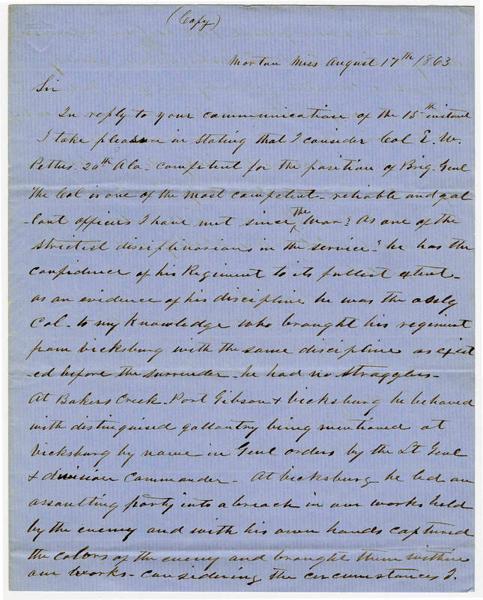 (Copy)
Morton Miss August 17th 1863
Sir
In reply to your communication of the 15th instant
I take pleasure in stating that I consider Col E. W.
Pettus 20th Ala. competent for the position of Brig. Genl
The Col is one of the most competent reliable and gal
-lant officers I have met since the War? As one of the
strictest disciplinarians in the service? he has the
confidence of his Regiment to its fullest extent
as an evidence of his discipline he was the only
Col. to my knowledge who brought his regiment
from Vicksburg with the same discipline as exist
-ed before the surrender - he had no stragglers -
At Bakers Creek - Port Gibson & Vicksburg he behaved
with distinguised gallantry being mentioned at
Vicksburg by name in Genl orders by the Lt Genl
& division Commander - At Vicksburg he led an
assaulting party into a breach in our works held
by the enemy and with his own hands captured
the colors of the enemy and brought them within
our works - considering the circumstances I.